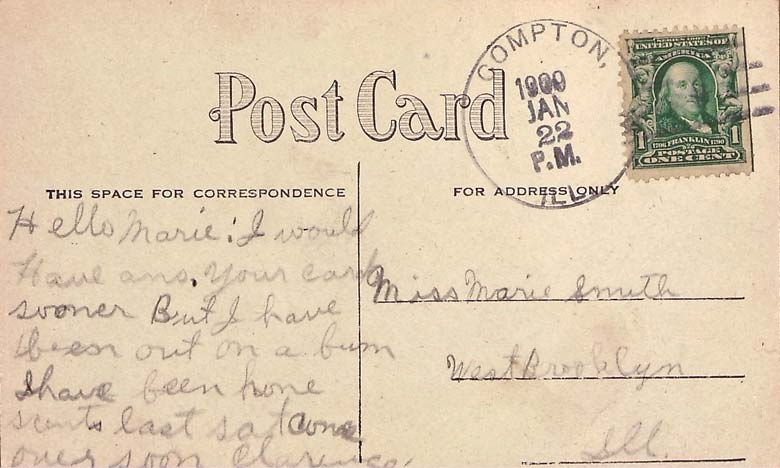 Post Card
COMPTON,
1909
JAN
22
P.M.
ILL
SERIES 1902
UNITED STATES OF
AMERICA
1 1
1706 FRANKLIN 1790
POSTAGE
ONE CENT
THIS SPACE FOR CORRESPONDENCE
FOR ADDRESS ONLY
Hello Marie: I would
Have ans. Your card
sooner But I have
been out on a bum
I have been home
scints last sat come
over soon Clarence.
Miss Marie Smith
West Brooklyn
Ill.